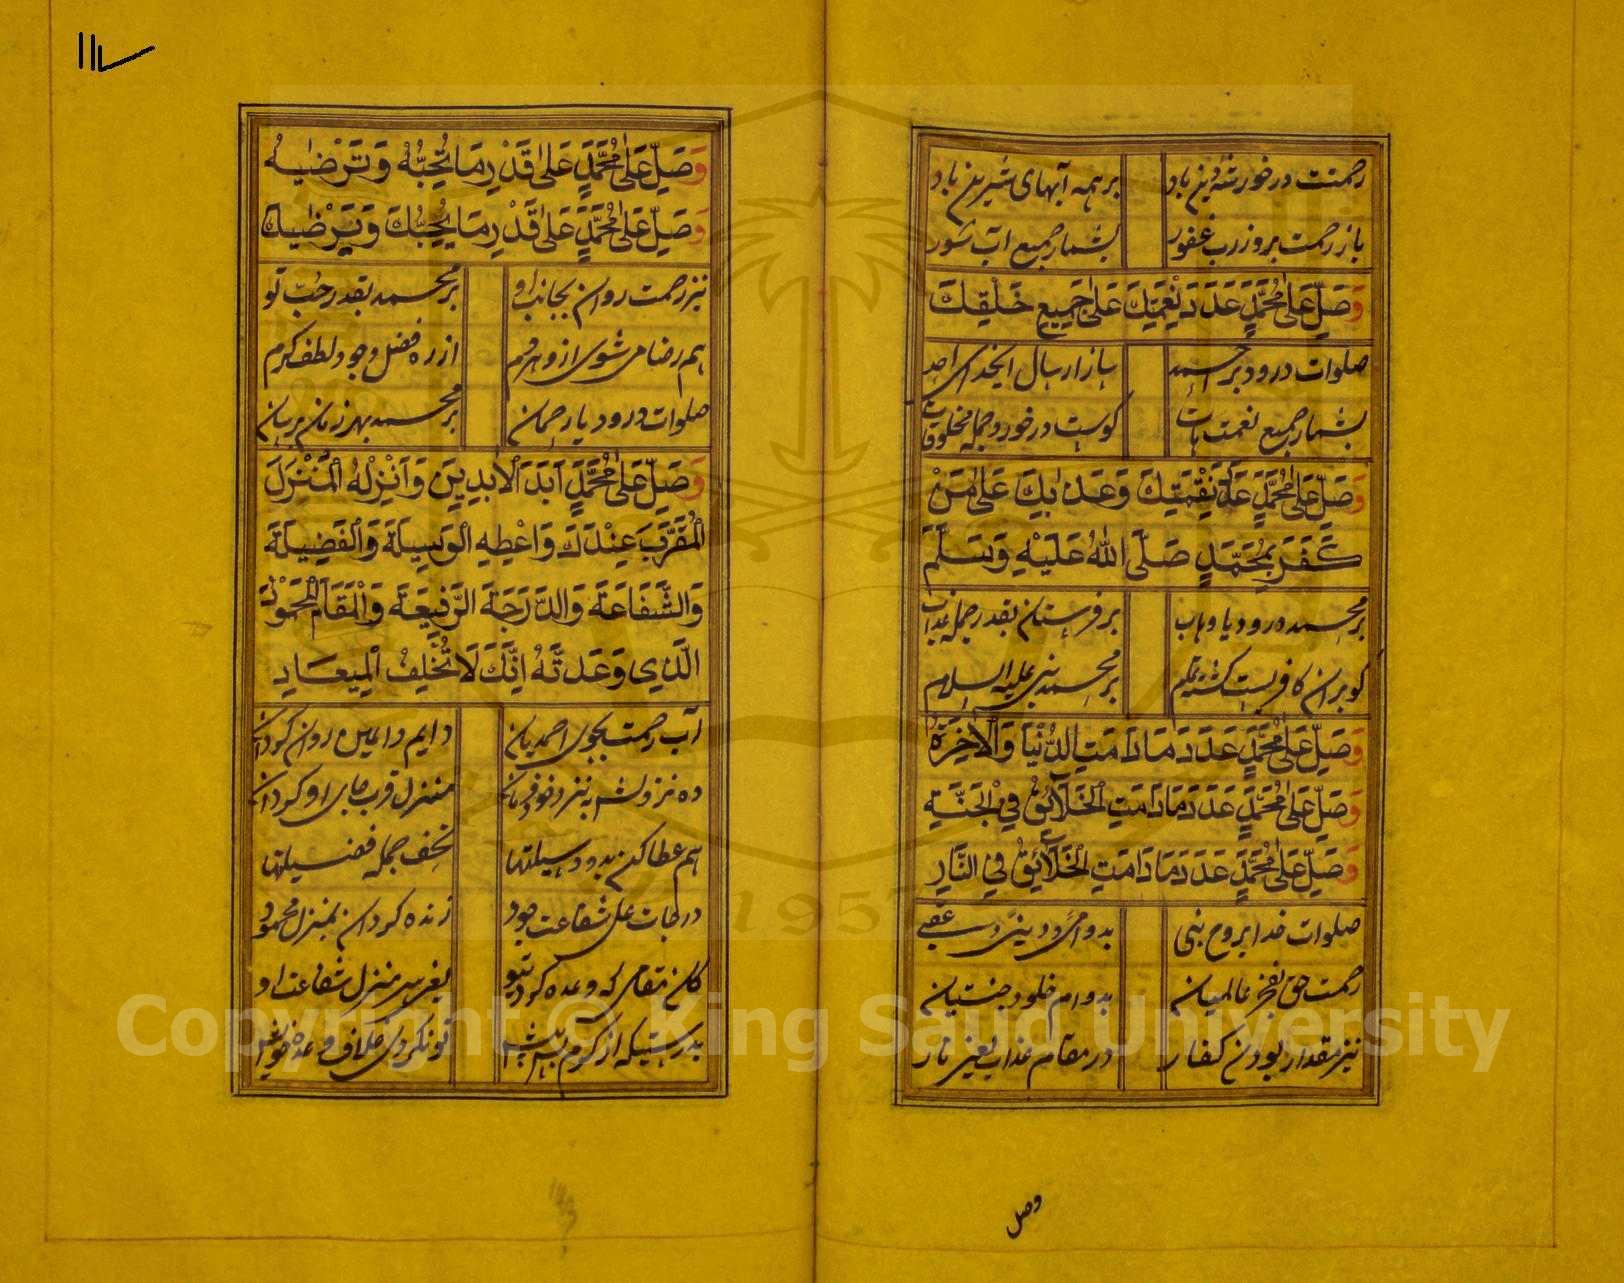 رحمتت در خور شه دین باد برهمه آبهای شیرین باد
باز رحمت بروز رب غفور بشمار جمیع آب شور
وَصَلِّ عَلٰى مُحَمَّدٍ عَدَدَ نِعْمَتِكَ عَلٰى جَمِيعِ خَلْقِكَ
صلوات درود بر احمد باز ارسال ایخدای احد
بشمار جمیع نعمت ذات کوست در خورد جمله مخلوقات
وَصَلِّ عَلٰى مُحَمَّدٍ عَدَدَ نِقْمَتِكَ وَعَذَابِكَ عَلٰى مَنْ
كَفَرَ بِمُحَمَّدٍ صَلَّى اللّٰهُ عَلَيْهِ وَسَلَّمَ
بر محمد درود یا وهاب بر فرستان بقدر جمله عذاب
کوبران کافریست کشته بر محمد نبی علیه السلام
وَصَلِّ عَلٰى مُحَمَّدٍ عَدَدَ مَا دَامَتِ الدُّنْيَا وَالْاٰخِرَةُ
وَصَلِّ عَلٰى مُحَمَّدٍ عَدَدَ مَا دَامَتِ الْخَلَآئِقُ فِي الْجَنَّةِ
وَصَلِّ عَلٰى مُحَمَّدٍ عَدَدَ مَا دَامَتِ الْخَلَآئِقُ فِي النَّارِ
صلوات خدا بروح نبی بدوام
رحمت حق بفخر عالمیان بدوام خلود جنتیان
نیز مقدار بودن کفار در مقام عذاب یعنی نار
وصل
١١٧
وَصَلِّ عَلٰى مُحَمَّدٍ عَلٰى قَدْرِ مَا تُحِبُّهُ وَتَرْضٰيهُ
وَصَلِّ عَلٰى مُحَمَّدٍ عَلٰى قَدْرِ مَا يُحِبُّكَ وَيَرْضٰيكَ
نیز رحمت روان بجانب او بر محمد بقدر حب تو
هم رضا می شوی ازو از ره فضل وجود لطف کرم
صلوات درود یا رحمان بر محمد بهر زمان برسان
وَصَلِّ عَلٰى مُحَمَّدٍ اَبَدَ الْاٰبِدِينَ وَاَنْزِلْهُ الْمُنْزَلَ
الْمُقَرَّبَ عِنْدَكَ وَاَعْطِهِ الْوَسِيلَةَ وَالْفَضِيلَةَ
وَالشَّفَاعَةَ وَالدَّرَجَةَ الرَّفِيعَةَ وَالْمَقَامَ الْمَحْمُودَ
الَّذِي وَعَدْتَهُ اِنَّكَ لَا تُخْلِفُ الْمِيعَادِ
آب رحمت بجوی احمدیان دایم روان کردان
ده نزولش به نزد خود منزل قرب جای او کردان
هم عطا کن بدو وسیلتها جمله فضیلتها
درجات علی شفاعت جود زنده کردان بمنزل محمود
کان مقامی که وعده کرد بتو یعنی منزل شفاعت او
بدرستیکه از کرم بیش تو نکردی خلاف وعده خویش
Copyright © King Saud University
1957